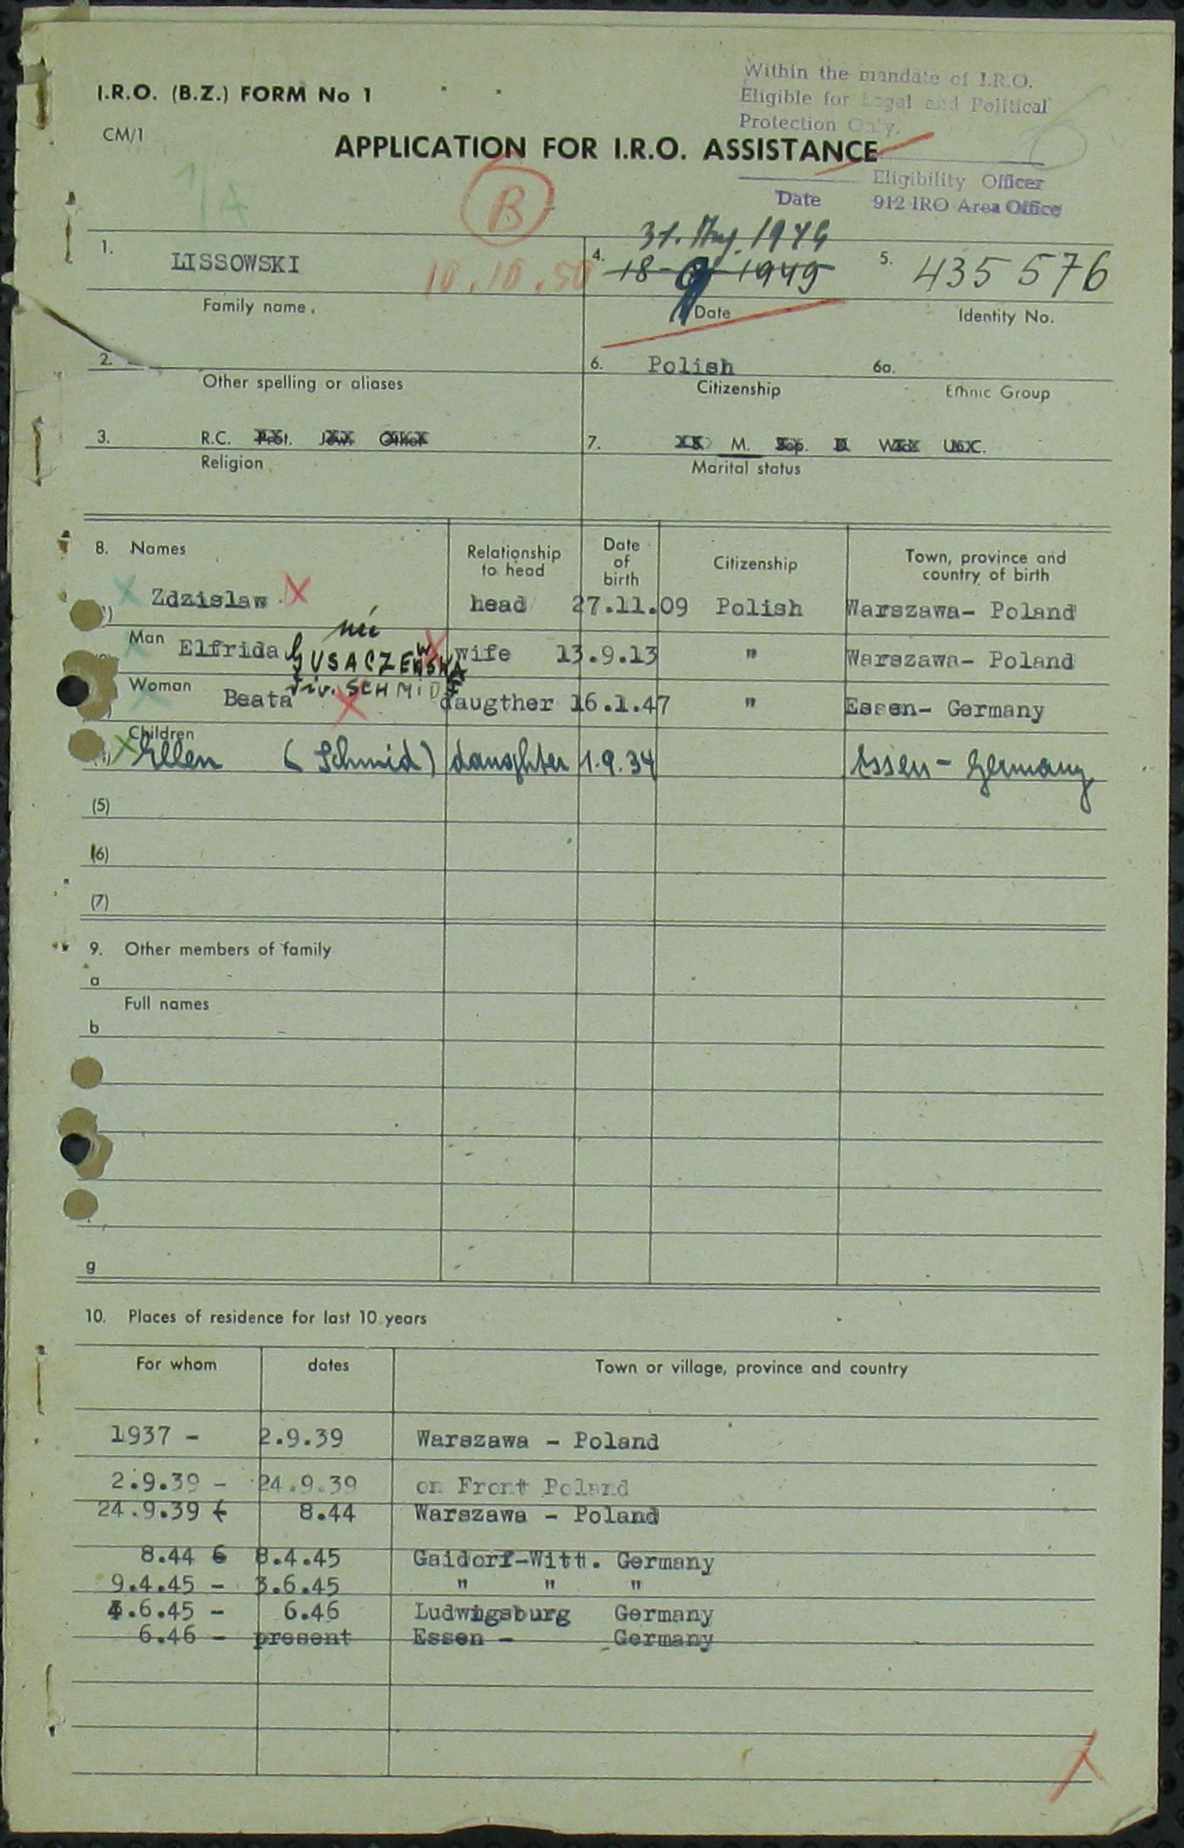 Within the mandate of I.R.O.
Eligible for Legal and Political
Protection Only.
I.R.O. (B.Z.) FORM No 1
CM/1
APPLICATION FOR I.R.O. ASSISTANCE
Eligibility Officer
Date 912 IRO Area Office
1/A
B
10.10.50
1. LISSOWSKI
Family name.
4. 31. Aug. 1949
18-9-1949
Date
5. 435 576
Identity No.
2.
Other spelling or aliases
6. Polish
Citizenship
6a.
Ethnic Group
3. R.C. Prot. Jew. Other
Religion
7. S. M. Sep. D. Wid. U.C.
Marital status
8. Names
Relationship to head
Date of birth
Citizenship
Town, province and country of birth
Zdzislaw head 27.11.09 Polish Warszawa- Poland
Man
Elfrida née GUSACZEWSKA wife 13.9.13 " Warszawa- Poland
div. SCHMIDT
Woman
Beata daugther 16.1.47 " Essen- Germany
Children
Ellen (Schmid) daughter 1.9.34 Essen - Germany
(5)
(6)
(7)
9. Other members of family
a
Full names
b
g
10. Places of residence for last 10 years
For whom dates Town or village, province and country
1937 - 2.9.39 Warszawa - Poland
2.9.39 - 24.9.39 on Front Poland
24.9.39 8.44 Warszawa - Poland
8.44 8.4.45 Gaidorf-Witt. Germany
9.4.45 - 3.6.45 " " "
4.6.45 - 6.46 Ludwigsburg Germany
6.46 - present Essen - Germany